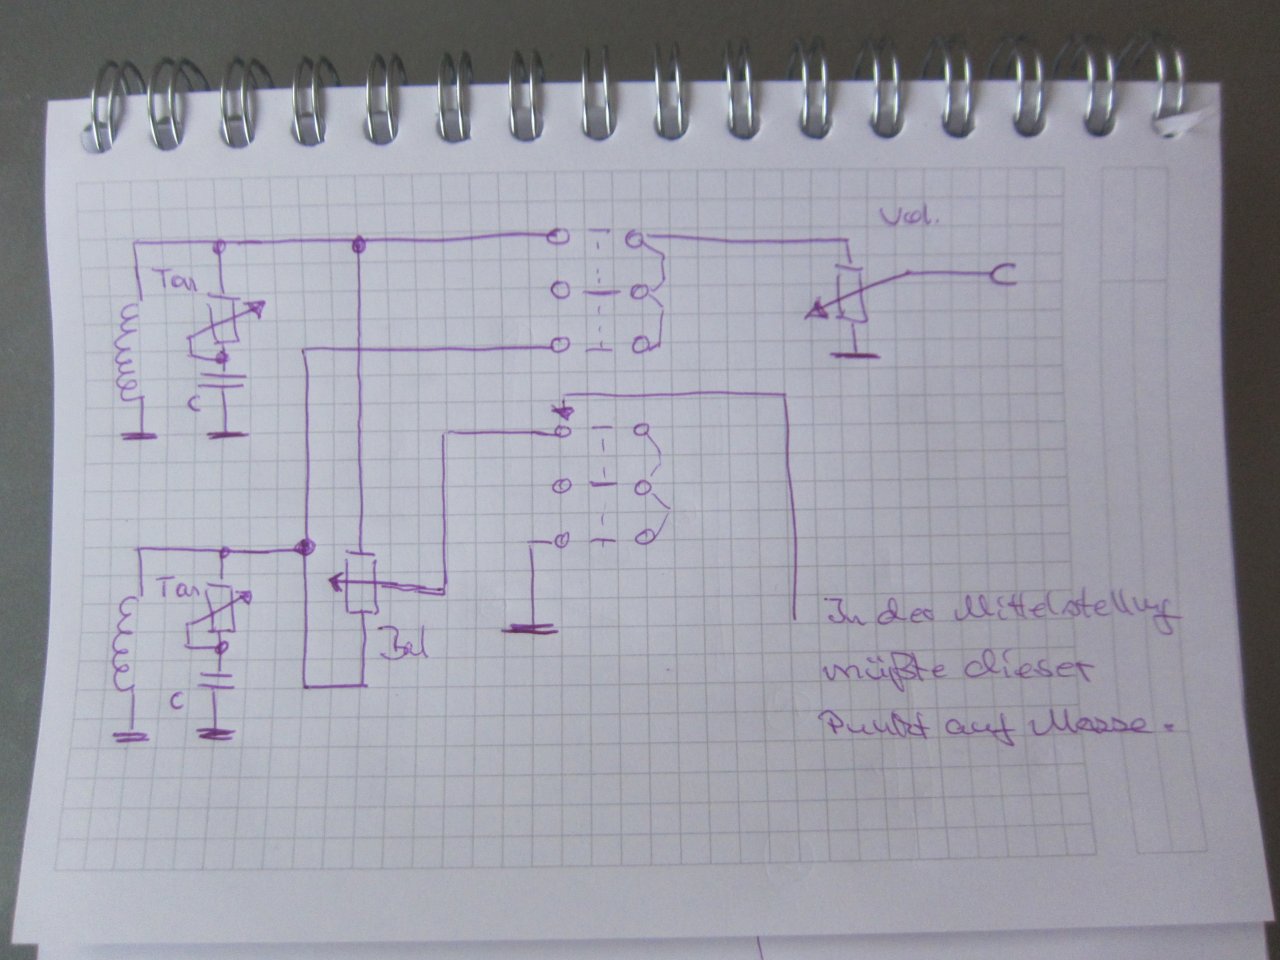 Vol.
Ton
C
Ton
Bal
C
In der Mittelstellung
müßte dieser
Punkt auf Masse.